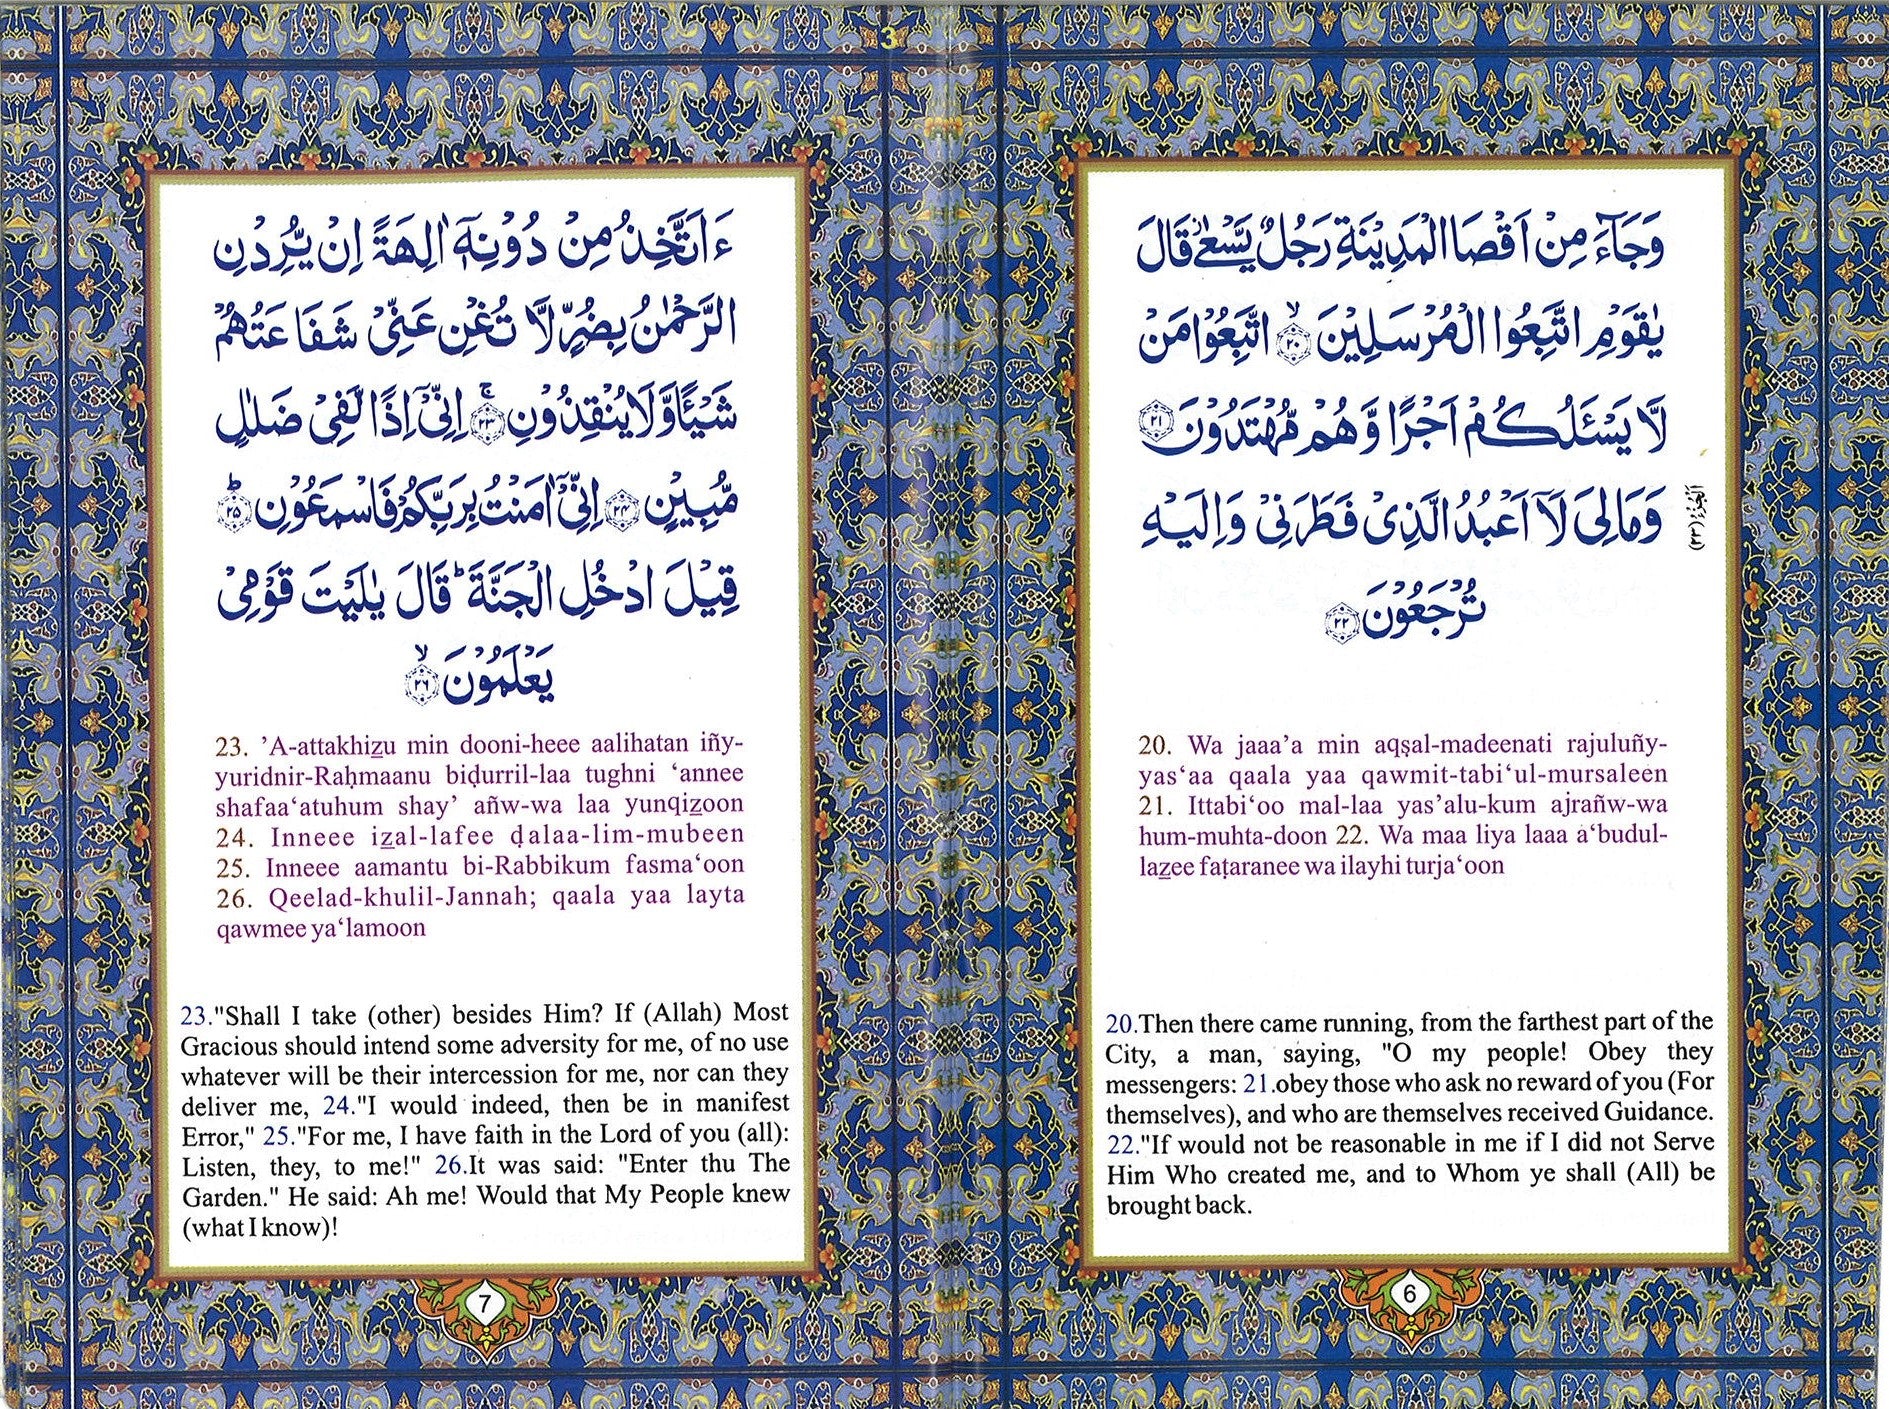 وَجَآءَ مِنْ اَقْصَا الْمَدِيْنَةِ رَجُلٌ يَّسْعٰى قَالَ
يٰقَوْمِ اتَّبِعُوا الْمُرْسَلِيْنَ ۙ‏﴿۲۰﴾ اتَّبِعُوْا مَنْ
لَّا يَسْـَٔلُكُمْ اَجْرًا وَّهُمْ مُّهْتَدُوْنَ ﴿۲۱﴾
وَمَا لِىَ لَاۤ اَعْبُدُ الَّذِىْ فَطَرَنِىْ وَاِلَيْهِ
تُرْجَعُوْنَ ﴿۲۲﴾
الجزء (۲۳)
20. Wa jaaa’a min aqṣal-madeenati rajuluñy-
yas‘aa qaala yaa qawmit-tabi‘ul-mursaleen
21. Ittabi‘oo mal-laa yas’alu-kum ajrañw-wa
hum-muhta-doon 22. Wa maa liya laaa a‘budul-
lazee faṭaranee wa ilayhi turja‘oon
20.Then there came running, from the farthest part of the
City, a man, saying, "O my people! Obey they
messengers: 21.obey those who ask no reward of you (For
themselves), and who are themselves received Guidance.
22."If would not be reasonable in me if I did not Serve
Him Who created me, and to Whom ye shall (All) be
brought back.
6
3
ءَاَتَّخِذُ مِنْ دُوْنِهٖۤ اٰلِهَةً اِنْ يُّرِدْنِ
الرَّحْمٰنُ بِضُرٍّ لَّا تُغْنِ عَنِّىْ شَفَاعَتُهُمْ
شَيْـًٔا وَّلَا يُنْقِذُوْنِ ۚ‏﴿۲۳﴾ اِنِّىْۤ اِذًا لَّفِىْ ضَلٰلٍ
مُّبِيْنٍ ﴿۲۴﴾ اِنِّىْۤ اٰمَنْتُ بِرَبِّكُمْ فَاسْمَعُوْنِ ؕ‏﴿۲۵﴾
قِيْلَ ادْخُلِ الْجَنَّةَ ؕ قَالَ يٰلَيْتَ قَوْمِىْ
يَعْلَمُوْنَ ۙ‏﴿۲۶﴾
23. ’A-attakhizu min dooni-heee aalihatan iñy-
yuridnir-Raḥmaanu biḍurril-laa tughni ‘annee
shafaa‘atuhum shay’ añw-wa laa yunqizoon
24. Inneee izal-lafee ḍalaa-lim-mubeen
25. Inneee aamantu bi-Rabbikum fasma‘oon
26. Qeelad-khulil-Jannah; qaala yaa layta
qawmee ya‘lamoon
23."Shall I take (other) besides Him? If (Allah) Most
Gracious should intend some adversity for me, of no use
whatever will be their intercession for me, nor can they
deliver me, 24."I would indeed, then be in manifest
Error," 25."For me, I have faith in the Lord of you (all):
Listen, they, to me!" 26.It was said: "Enter thu The
Garden." He said: Ah me! Would that My People knew
(what I know)!
7